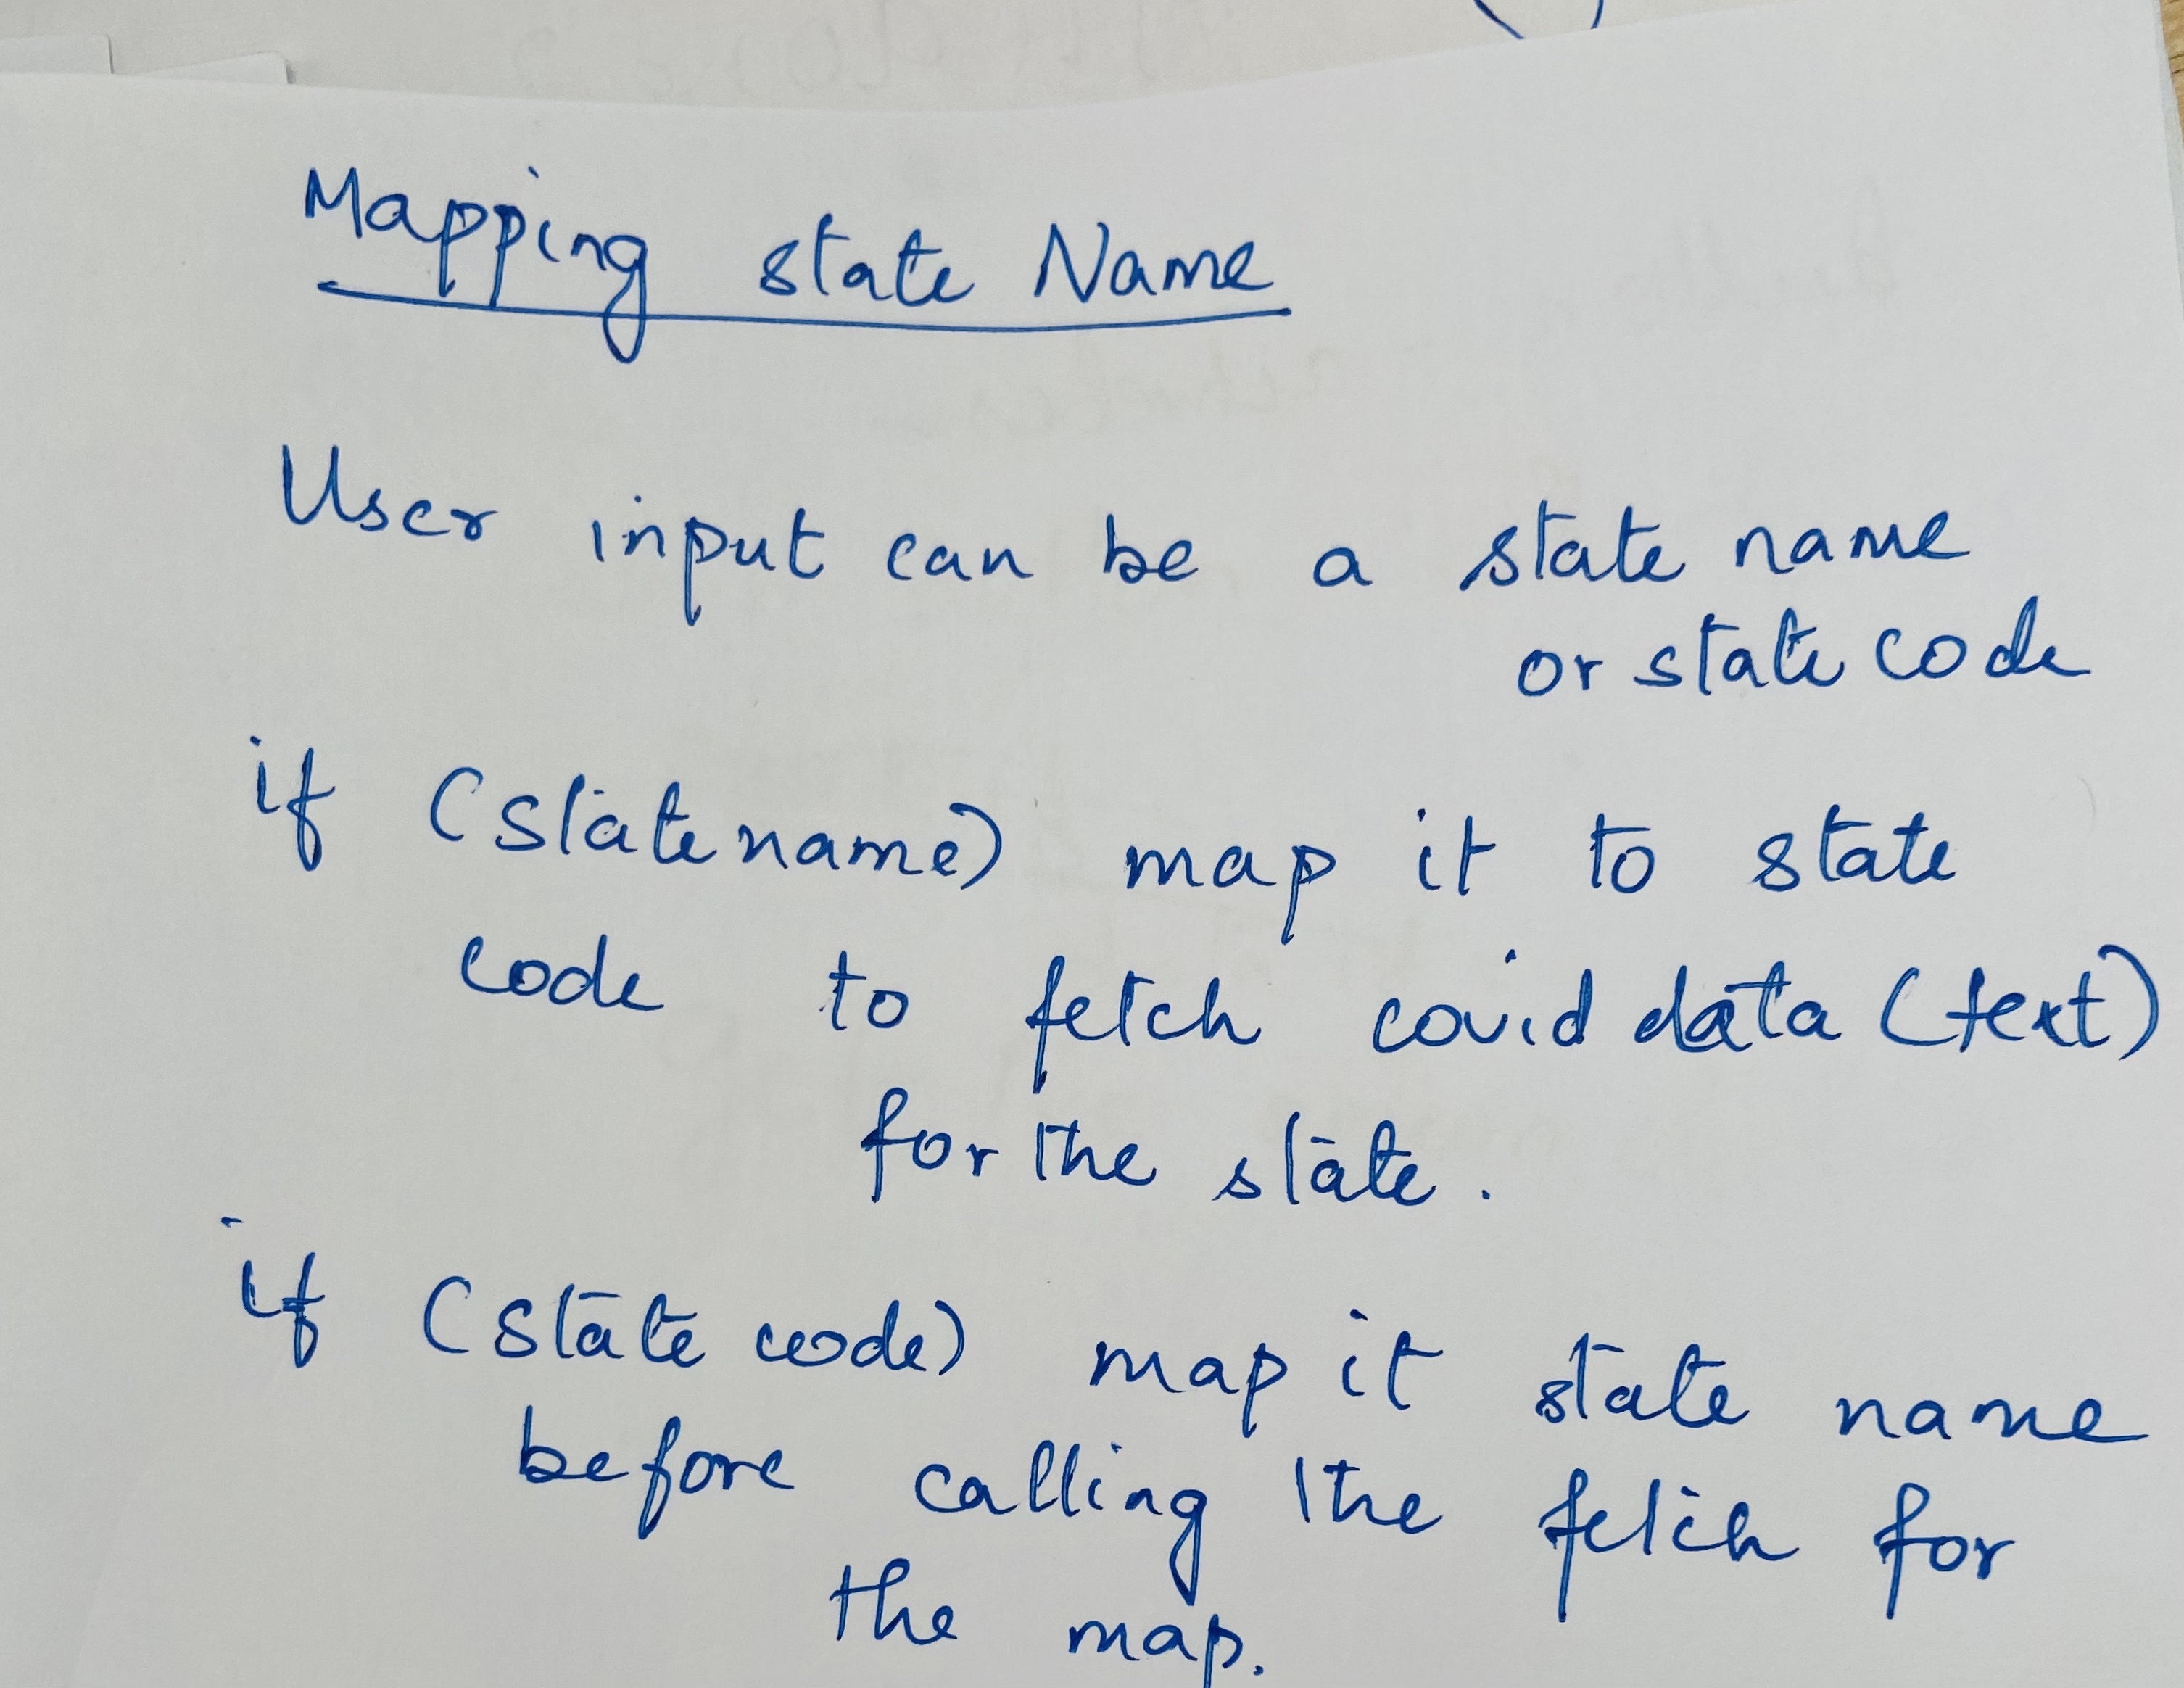 Mapping state Name
User input can be a state name
or state code
if (statename) map it to state
code to fetch covid data (text)
for the state.
if (state code) map it state name
before calling the fetch for
the map.